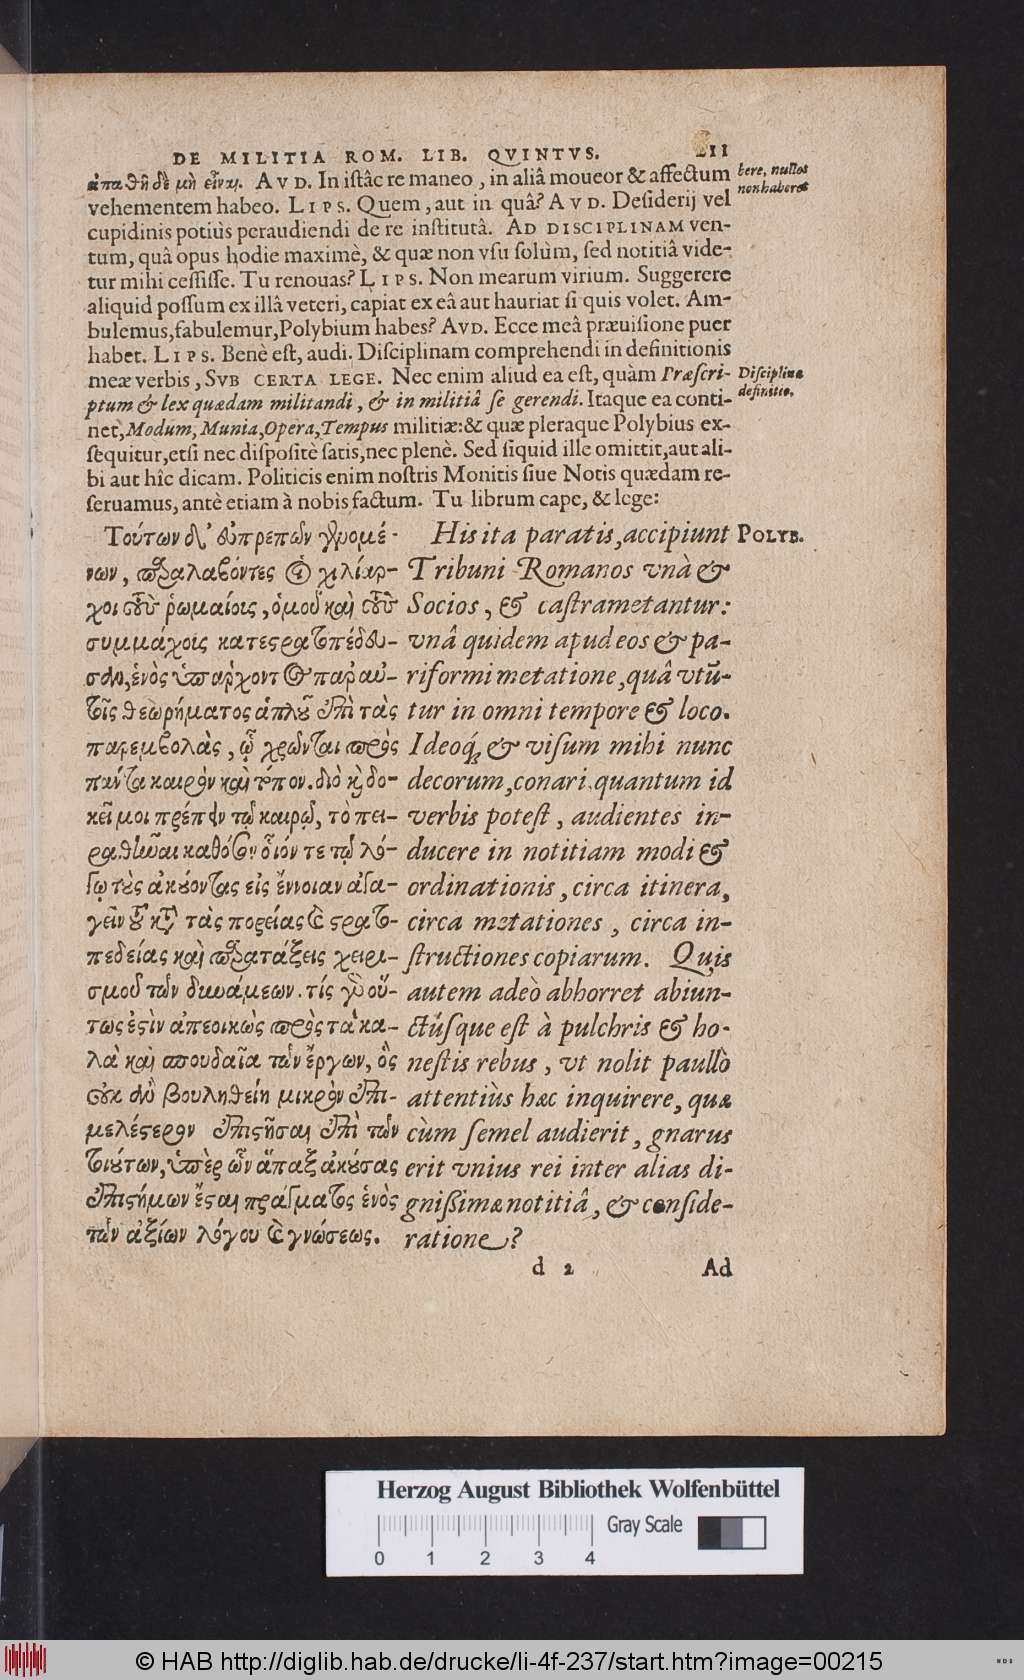 DE MILITIA ROM. LIB. QVINTVS. 211
ἀπαθῆ δὲ μὴ εἶναι. AVD. In iſtâc re maneo, in aliâ moueor & affectum
bere, nullos
non haberet
vehementem habeo. LIPS. Quem, aut in quâ? AVD. Deſiderij vel
cupidinis potiùs peraudiendi de re inſtitutâ. AD DISCIPLINAM ven-
tum, quâ opus hodie maximè, & quæ non vſu ſolùm, ſed notitiâ vide-
tur mihi ceſſiſſe. Tu renouas? LIPS. Non mearum virium. Suggerere
aliquid poſſum ex illâ veteri, capiat ex eâ aut hauriat ſi quis volet. Am-
bulemus, fabulemur, Polybium habes? AVD. Ecce meâ præuiſione puer
habet. LIPS. Benè eſt, audi. Diſciplinam comprehendi in definitionis
meæ verbis, SVB CERTA LEGE. Nec enim aliud ea eſt, quàm Præſcri-
Diſciplina
definitio.
ptum & lex quædam militandi, & in militiâ ſe gerendi. Itaque ea conti-
net, Modum, Munia, Opera, Tempus militiæ: & quæ pleraque Polybius ex-
ſequitur, etſi nec diſpoſitè ſatis, nec plenè. Sed ſiquid ille omittit, aut ali-
bi aut hîc dicam. Politicis enim noſtris Monitis ſiue Notis quædam re-
ſeruamus, antè etiam à nobis factum. Tu librum cape, & lege:
Τούτων δ' εὐπρεπῶν γενομέ-
νων, παραλαβόντες οἱ χιλίαρ-
χοι τοὺς ῥωμαίοις, ὁμοῦ καὶ τοὺς
συμμάχοις κατεστρατοπέδευ-
σαν, ἑνὸς ὑπάρχοντος παρ' αὐ-
τοῖς θεωρήματος ἁπλοῦ ἐπὶ τὰς
παρεμβολὰς, ᾧ χρῶνται πρὸς
πάντα καιρὸν καὶ τόπον. διὸ καὶ δο-
κεῖ μοι πρέπειν τῷ καιρῷ, τὸ πει-
ραθῆναι καθόσον οἷόν τε τῷ λό-
γῳ τοὺς ἀκούοντας εἰς ἔννοιαν ἀγα-
γεῖν τοῦ κατὰ τὰς πορείας καὶ στρατο-
πεδείας καὶ παρατάξεις χειρι-
σμοῦ τῶν δυνάμεων. τίς γὰρ οὕ-
τως ἐστὶν ἀπεοικὼς πρὸς τὰ κα-
λὰ καὶ σπουδαῖα τῶν ἔργων, ὃς
οὐκ ἂν βουληθείη μικρὸν ἐπι-
μελέστερον ἐπιστῆσαι ἐπὶ τῶν
τοιούτων, ὑπὲρ ὧν ἅπαξ ἀκούσας
ἐπιστήμων ἔσται πράγματος ἑνὸς
τῶν ἀξίων λόγου καὶ γνώσεως.
His ita paratis, accipiunt
POLYB.
Tribuni Romanos vnà &
Socios, & caſtrametantur:
vnâ quidem apud eos & pa-
riformi metatione, quâ vtũ-
tur in omni tempore & loco.
Ideoq́; & viſum mihi nunc
decorum, conari quantum id
verbis poteſt, audientes in-
ducere in notitiam modi &
ordinationis, circa itinera,
circa metationes, circa in-
ſtructiones copiarum. Quis
autem adeò abhorret abiun-
ctúſque eſt à pulchris & ho-
neſtis rebus, vt nolit paullò
attentiùs hæc inquirere, quæ
cùm ſemel audierit, gnarus
erit vnius rei inter alias di-
gniſſimæ notitiâ, & conſide-
ratione?
d 2 Ad
Herzog August Bibliothek Wolfenbüttel
Gray Scale
0 1 2 3 4
© HAB http://diglib.hab.de/drucke/li-4f-237/start.htm?image=00215